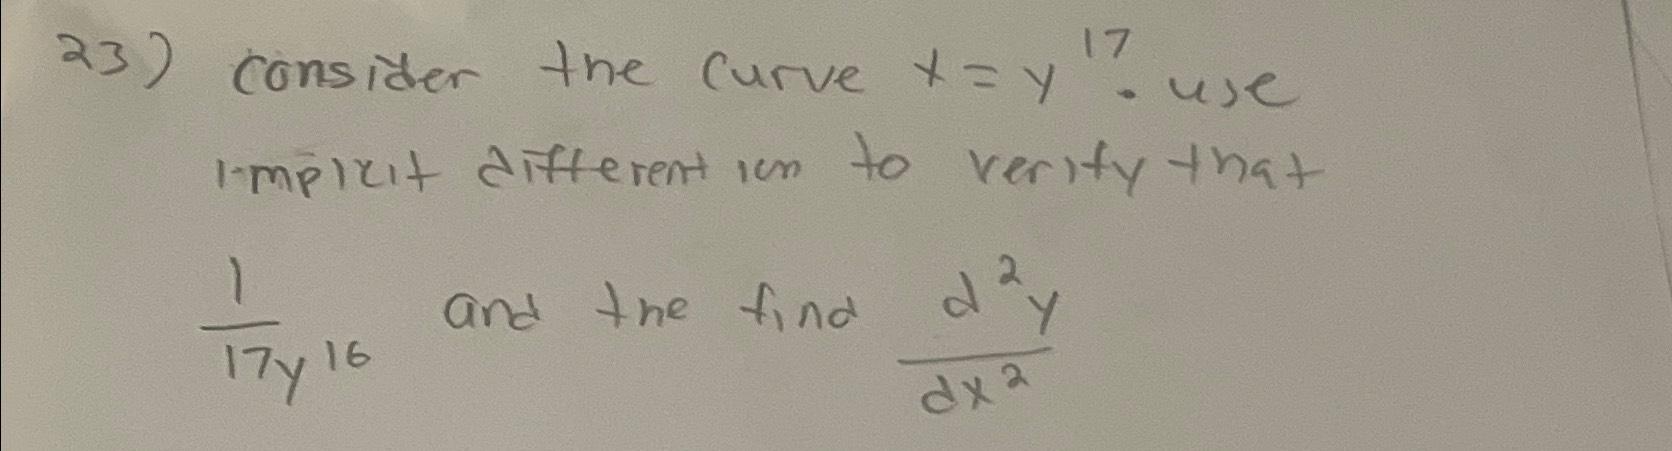 23) consider the curve x = y^17. use
implicit differention to verify that
1/17y^16 and the find d^2y/dx^2